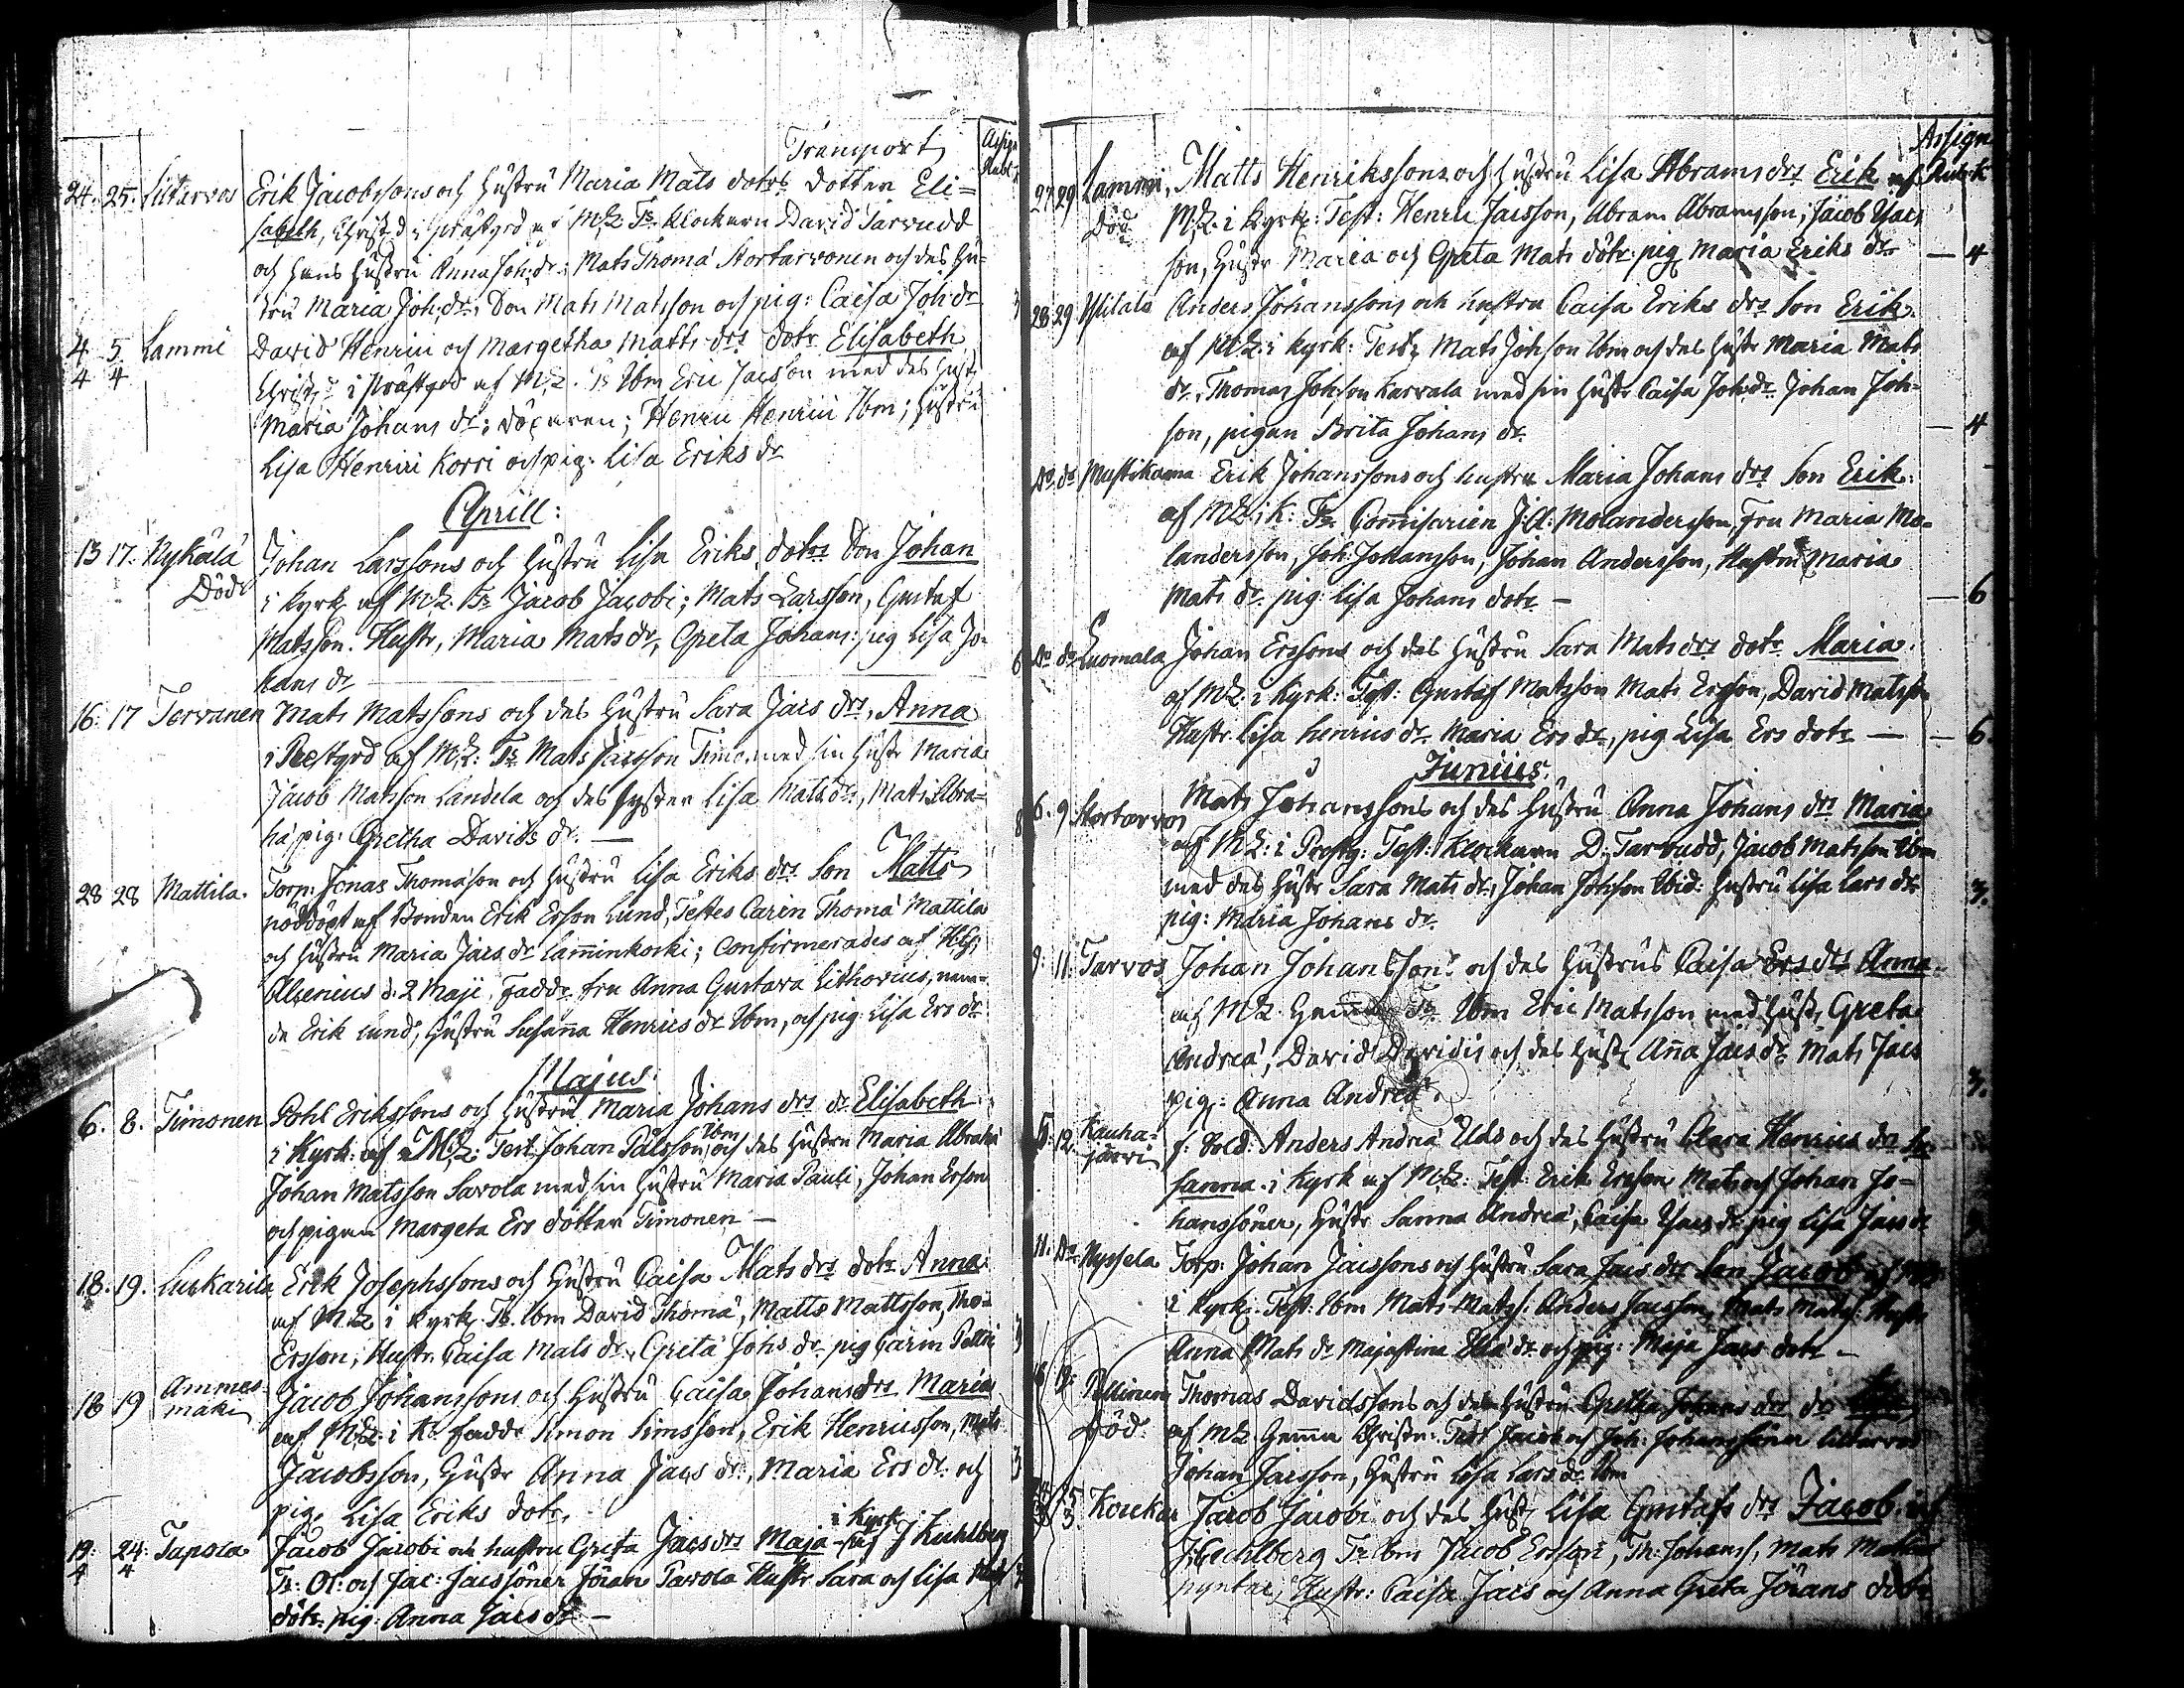 Transport
24. 25. Liitarvos Erik Jacobssons och Hustru Maria Mats dotrs dotter Eli=
sabeth, Christ. d. i Prästgrd af MZ Ts. Klockarn David Tarvudd
och hans Hustru Anna Joh: dr; Mats Thomæ Stortarvonen och des Hu=
tru Maria Joh: dr. Don Mats Matsson och pig: Caisa Joh dr
4/4 5/4 Lammi David Henrici och Margetha Matts drs dotr Elisabeth
Christ. i Prästgrd af MZ. Ts Ibm Eric Jacsson med des Hust.
Maria Johans dr; Henric Henrici Ibm; Hustru
Lisa Henrici Korri och pig: Lisa Eriks dr
Aprill:
13 17. Nykälä Johan Larssons och Hustru Lisa Eriks dotrs Son Johan
Död i Kyrk af MZ. Ts Jacob Jacobi; Mats Larsson, Gustaf
Matsson. Hustr, Maria Mats dr, Greta Johans: pig Lisa Jo-
hans dr
16. 17 Tervanen Mats Matssons och des Hustru Sara Jacs drs, Anna
i Prestgrd af MZ: Ts Mats Jacsson Timo, med sin Hustr Maria
Jacob Matsson Landela och des syster Lisa Mats dr, Mats Abra=
hā pig: Gretha Davids dr. —
28 28 Mattila. Torp: Jonas Thomæson och Hustru Lisa Eriks drs Son Matts
nöddöpt af Bonden Erik Erson Lund, Testes Carin Thomæ Mattila
och Hustru Maria Jacs dr Lam̄inkoski; Confirmerades af
Alcenius d. 2 Maji, Fadde. fru Anna Gustava Lithovius, näm-
de Erik Lund, Hustru Susan̄a Henrics dr Ibm, och pig: Lisa Ers dr
Majus.
6. 8. Timonen Pohl Erikssons och Hustru Maria Johans drs dr Elisabeth
i Kyrk: af MZ: Test. Johan Pålsson Ibm och des Hustru Maria Abrahā
Johan Matsson Savola med sin Hustru Maria Pauli, Johan Erson
och pigan Margeta Ers dotter Timonen —
18. 19. Luckarila Erik Josephssons och Hustru Caisa Mats drs dotr Anna
af MZ i Kyrk. Ts. Ibm David Thomæ, Matts Mattsson, Tho-
Ersson, Hustr. Caisa Mats dr, Greta Johs dr pig Carin
18 19 Ammes
mäki Jacob Johanssons och Hustru Caisa Johans drs Maria
af MZ: i K. Fadde. Simon Simsson, Erik Henricsson, Mats
Jacobsson, Hustr Anna Jacs dr., Maria Ers dr och
pig. Lisa Eriks dotr.
19/4 24/4 Tapola Jacob Jacobi och hustru Greta Jacs drs Maja i Kyrk af J Kuhlberg
Ts: Ol: och Jac: Jacssöner Jöran Savola Hustr Sara och Lisa
dotr. pig: Anna Jacs dr —
Assign
27 29 Lammi, Matts Henrikssons och Hustru Lisa Abrams drs Erik af
Död MZ. i Kyrk: Test: Henric Jacsson, Abram Abramsson, Jacob Isacs
son, Hustr Maria och Greta Mats dotr. pig Maria Eriks dr — 4
28 29 Ylitalo Anders Johanssons och hustru Caisa Eriks drs Son Erik.
af MZ: i Kyrk: Test: Mats Johson Ibm och des Hustr Maria Mats
dr. Thomas Johson Karvala med sin Hustr Caisa Joh: dr. Johan Joh-
son, pigan Brita Johans dr. — 4
do. do Mustikama Erik Johanssons och hustru Maria Johans drs Son Erik:
af MZ: i K: Ts. Com̄isarien J: A: Molandersson, Fru Maria Mo-
landersson, Joh: Johansson, Johan Andersson, Hustru Maria
Mats dr. pig: Lisa Johans dotr — — 6
do do Luomala Johan Erssons och des Hustru Sara Mats drs dotr Maria.
af MZ: i Kyrk: Test: Gustaf Matsson Mats Ersson, David Matsson
Hustr Lisa Henrics dr. Maria Ers dr, pig Lisa Ers dotr — — 6.
Junius.
6. 9 Stortarvos Mats Johanssons och des Hustru Anna Johans drs Maria
af MZ: i Prestg: Test: Klockarn D: Tarvudd, Jacob Matsson Ibm
med des Hustr Sara Mats dr, Johan Johsson Ibid: Hustru Lisa Lars dr 3.
pig: Maria Johans dr.
9. 11. Tarvos Johan Johanssons och des Hustrus Caisa Ers drs Anna.
af MZ. Ts. Ibm Eric Matsson med Hustr. Greta
Andreæ, David Davidis och des Hustr An̄a Jacs dr Mats Jacs
pig: Anna Andreæ. 3.
5. 12. Kauha=
järvi f: Sold: Anders Andreæ Ulds och des Hustru Clara Henrics drs Su-
sanna i Kyrk af MZ: Test: Erik Ersson Mats och Johan Jo-
hanssöner, Hustr Sanna Andreæ, Caisa Isacs dr pig Lisa Jacs dr
11. do. Nyysela Torp: Johan Jacssons och Hustru Sara Jacs drs Son Jacob af MZ
i Kyrk. Test: Ibm Mats Matss: Anders Jacsson, Mats Matss:
Anna Mats dr Majastina dr och pig: Maja Jacs dotr —
Pellinen Thomas Davidssons och des Hustru Gretha Johans drs dr
Död. af MZ. Test Jacob och Joh: Johanssöner
Johan Jacsson, Hustru Lisa Lars dr Ibm
Koukar Jacob Jacobi och des Hustr. Lisa Gustafs drs Jacob af
J: Kuhlberg Ts Ibm Jacob Ersson, Th: Johanss, Mats
Hustr: Caisa Jacs och Anna Greta Jörans dotr